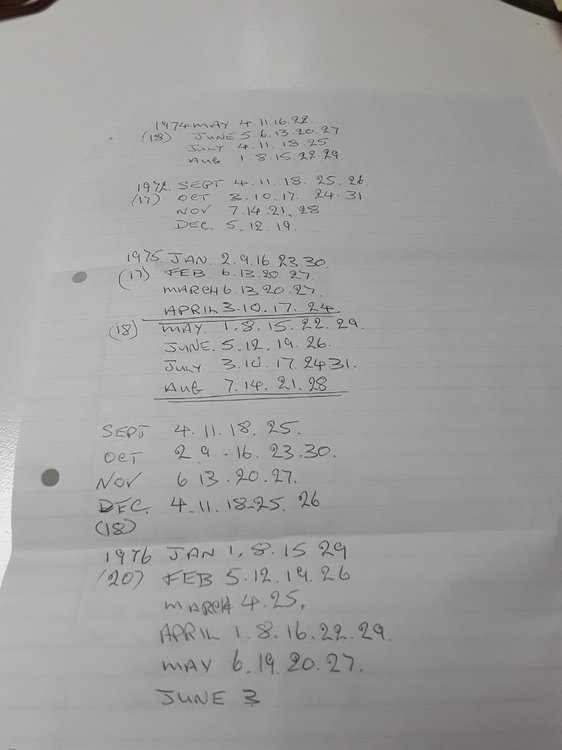 1974 MAY 4.11.16.22.
(18) JUNE 5.6.13.20.27
JULY 4.11.18.25
AUG 1.8.15.22.29
1972. SEPT 4.11.18.25.26.
(17) OCT 3.10.17.24.31
NOV 7.14.21.28
DEC. 5.12.19.
1975 JAN. 2.9.16.23.30.
(17) FEB 6.13.20.27
MARCH 6.13.20.27
APRIL 3.10.17.24
(18) MAY 1.8.15.22.29.
JUNE. 5.12.19.26.
JULY 3.10.17.24.31.
AUG 7.14.21.28
SEPT 4.11.18.25.
OCT 2.9.16.23.30.
NOV 6 13.20.27.
DEC. 4.11.18.25.26
(18)
1976 JAN 1,8.15 29
(20) FEB 5.12.19.26
MARCH 4.25.
APRIL 1.8.16.22.29.
MAY 6.19.20.27.
JUNE 3